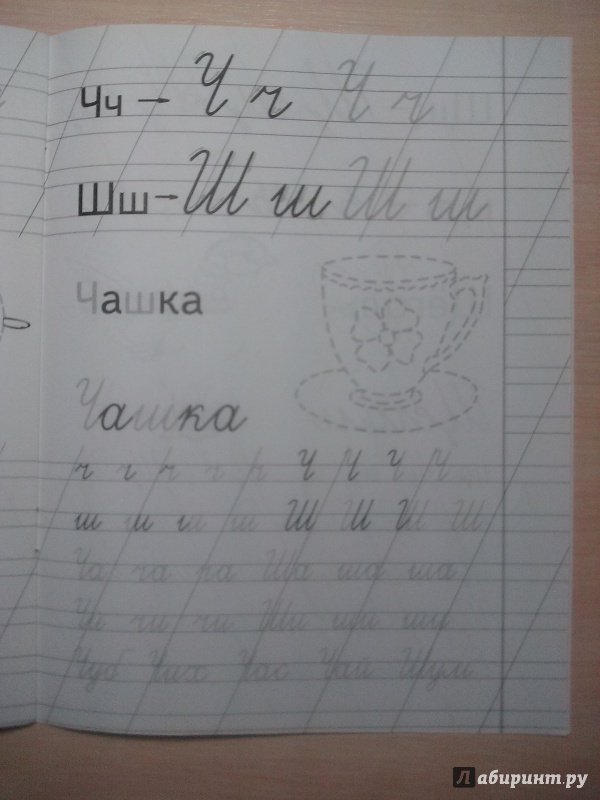 Чч → Ч ч Ч ч
Шш → Ш ш Ш ш
Чашка
Чашка
ч ч ч ч ч Ч Ч Ч Ч
ш ш ш ш Ш Ш Ш Ш
Ча ча ча Ша ша ша
Чи чи чи Ши ши ши
Чуб Чих Час Чай Шум
Лабиринт.ру